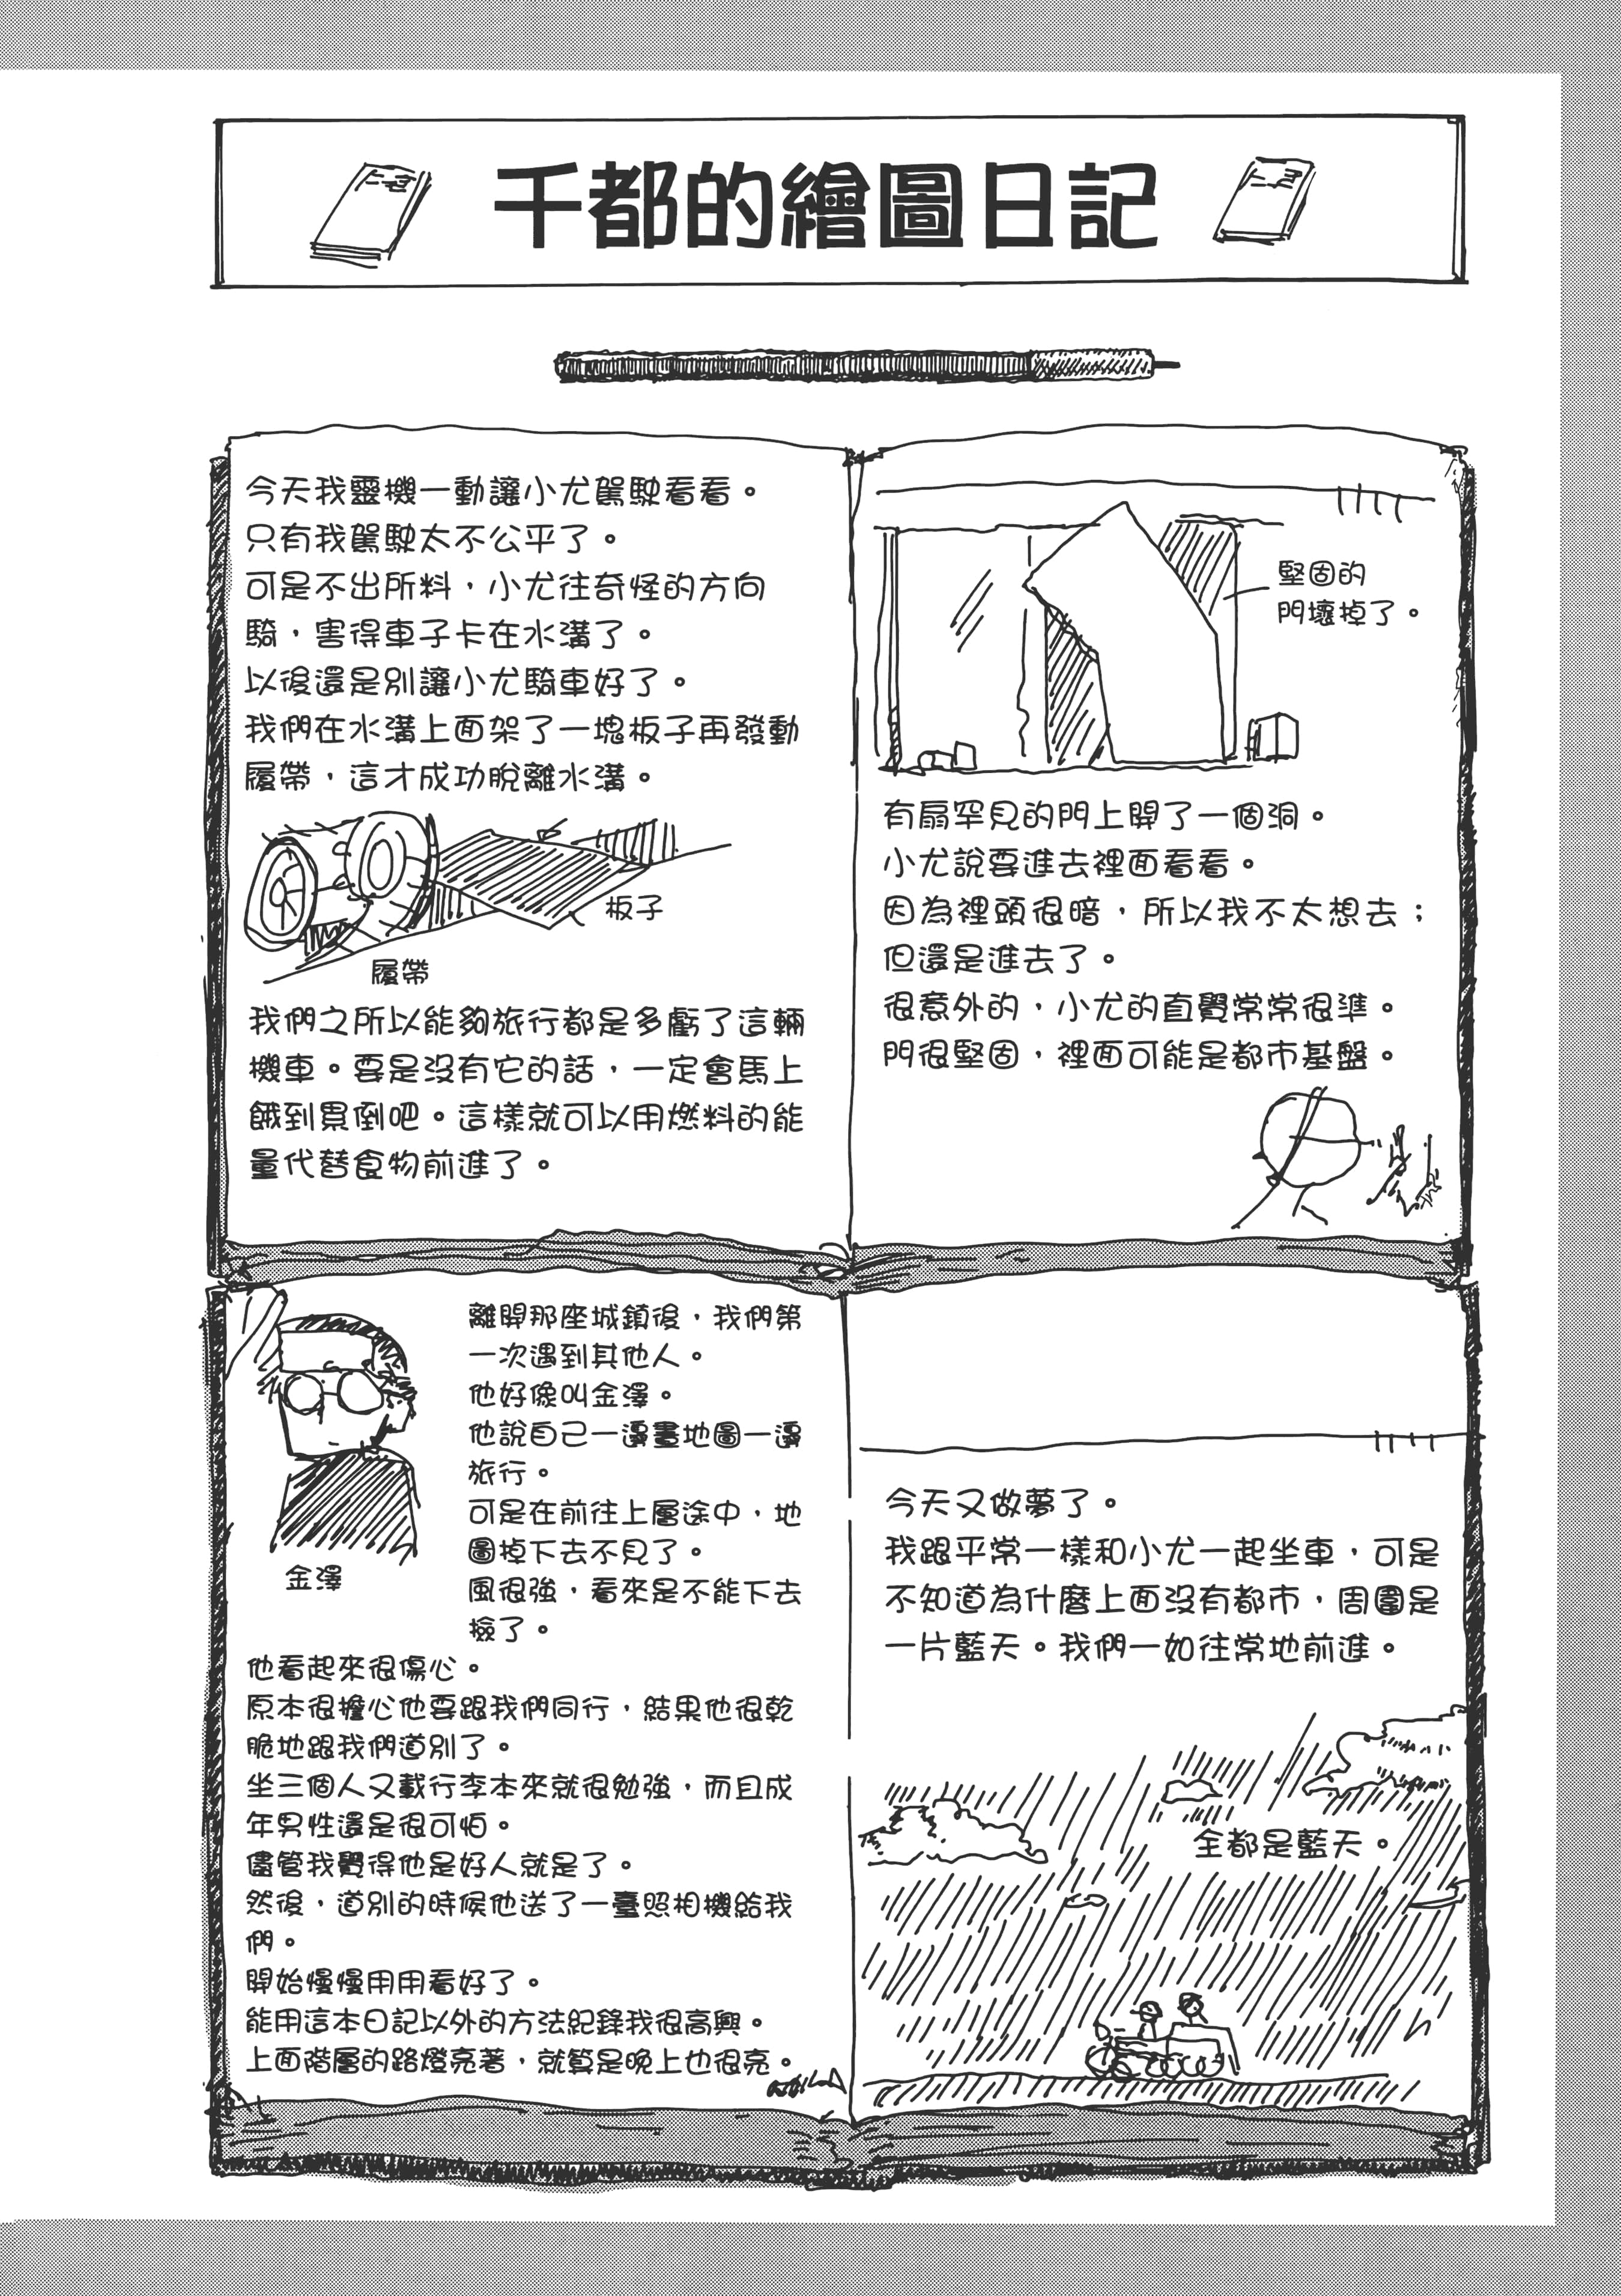 千都的繪圖日記
今天我靈機一動讓小尤駕駛看看。
只有我駕駛太不公平了。
可是不出所料，小尤往奇怪的方向
騎，害得車子卡在水溝了。
以後還是別讓小尤騎車好了。
我們在水溝上面架了一塊板子再發動
履帶，這才成功脫離水溝。
板子
履帶
我們之所以能夠旅行都是多虧了這輛
機車。要是沒有它的話，一定會馬上
餓到昏倒吧。這樣就可以用燃料的能
量代替食物前進了。
堅固的
門壞掉了。
有扇罕見的門上開了一個洞。
小尤說要進去裡面看看。
因為裡頭很暗，所以我不太想去；
但還是進去了。
很意外的，小尤的直覺常常很準。
門很堅固，裡面可能是都市基盤。
離開那座城鎮後，我們第
一次遇到其他人。
他好像叫金澤。
他說自己一邊畫地圖一邊
旅行。
可是在前往上層途中，地
圖掉下去不見了。
風很強，看來是不能下去
撿了。
金澤
他看起來很傷心。
原本很擔心他要跟我們同行，結果他很乾
脆地跟我們道別了。
坐三個人又載行李本來就很勉強，而且成
年男性還是很可怕。
儘管我覺得他是好人就是了。
然後，道別的時候他送了一臺照相機給我
們。
開始慢慢用用看好了。
能用這本日記以外的方法紀錄我很高興。
上面階層的路燈亮著，就算是晚上也很亮。
今天又做夢了。
我跟平常一樣和小尤一起坐車，可是
不知道為什麼上面沒有都市，周圍是
一片藍天。我們一如往常地前進。
全都是藍天。